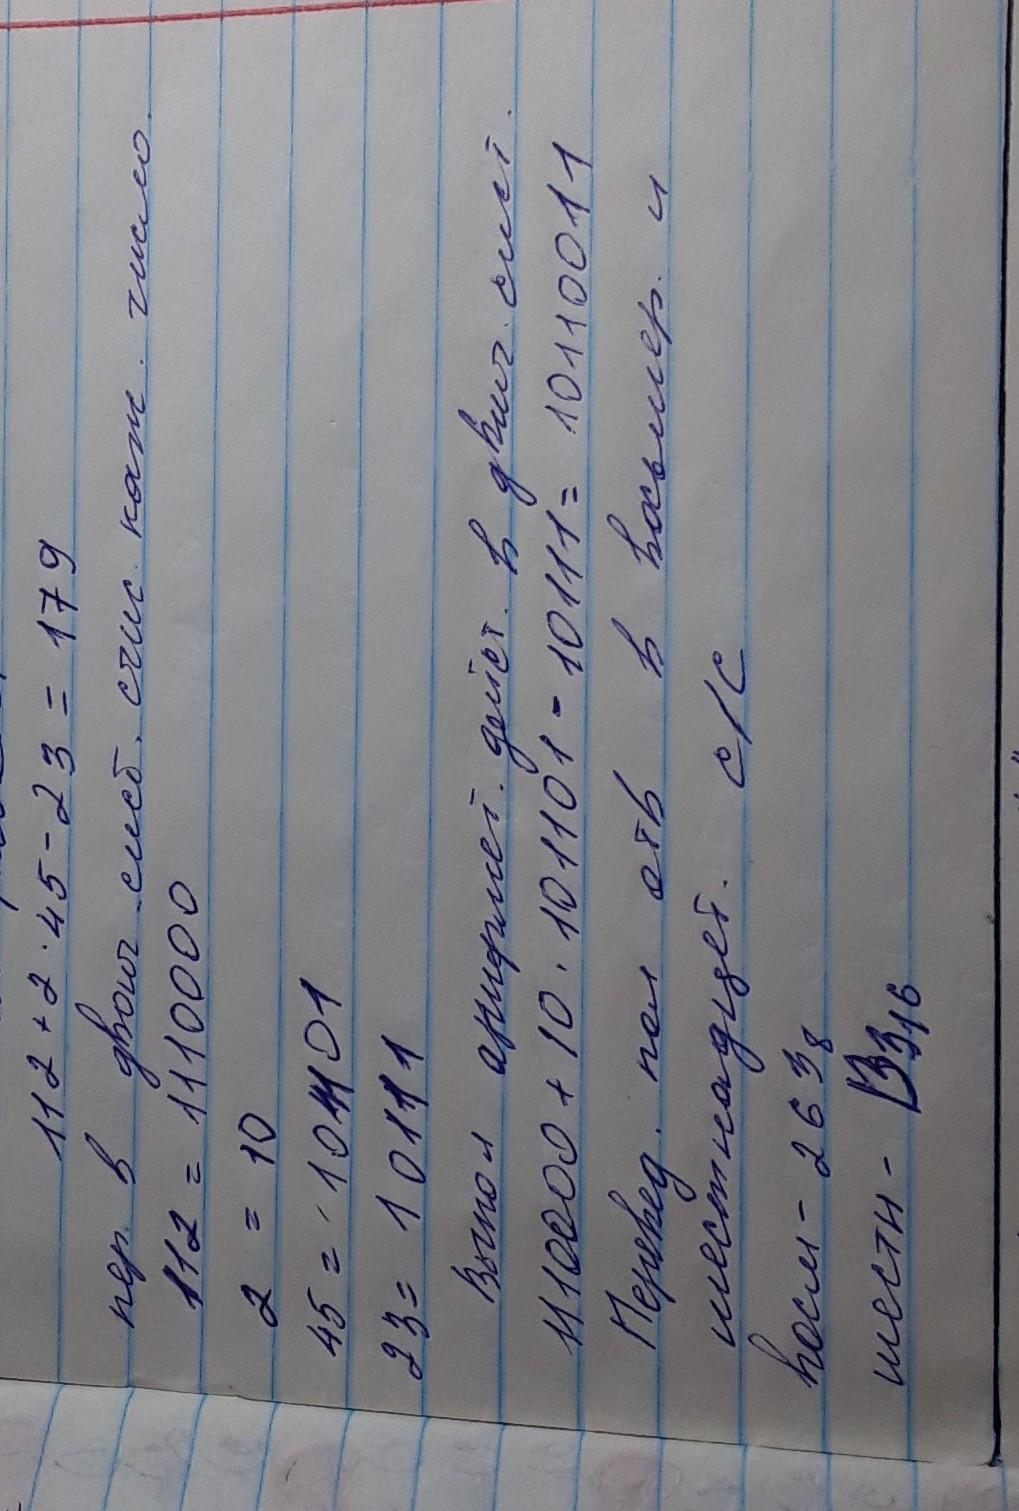 112 + 2 · 45 - 23 = 179
пер. в двоич. сист. счис. каж. число
112 = 1110000
2 = 10
45 = 101101
23 = 10111
Выпол арифмет. дейст. в двоич. сист.
1110000 + 10 · 101101 - 10111 = 10110011
Перевед. пол отв в восьмер. и
шестнадцет. с/с
восм - 263₈
шестн - B3₁₆